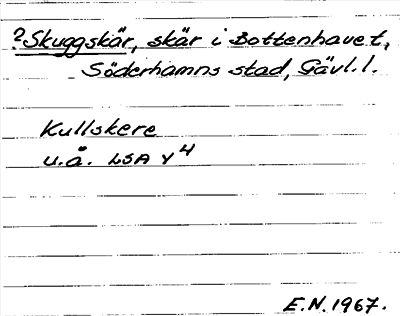 ?Skuggskär, skär i Bottenhavet,
Söderhamns stad, Gävl.l.
Kullskere
u.å. LSA Y4
E.N. 1967.